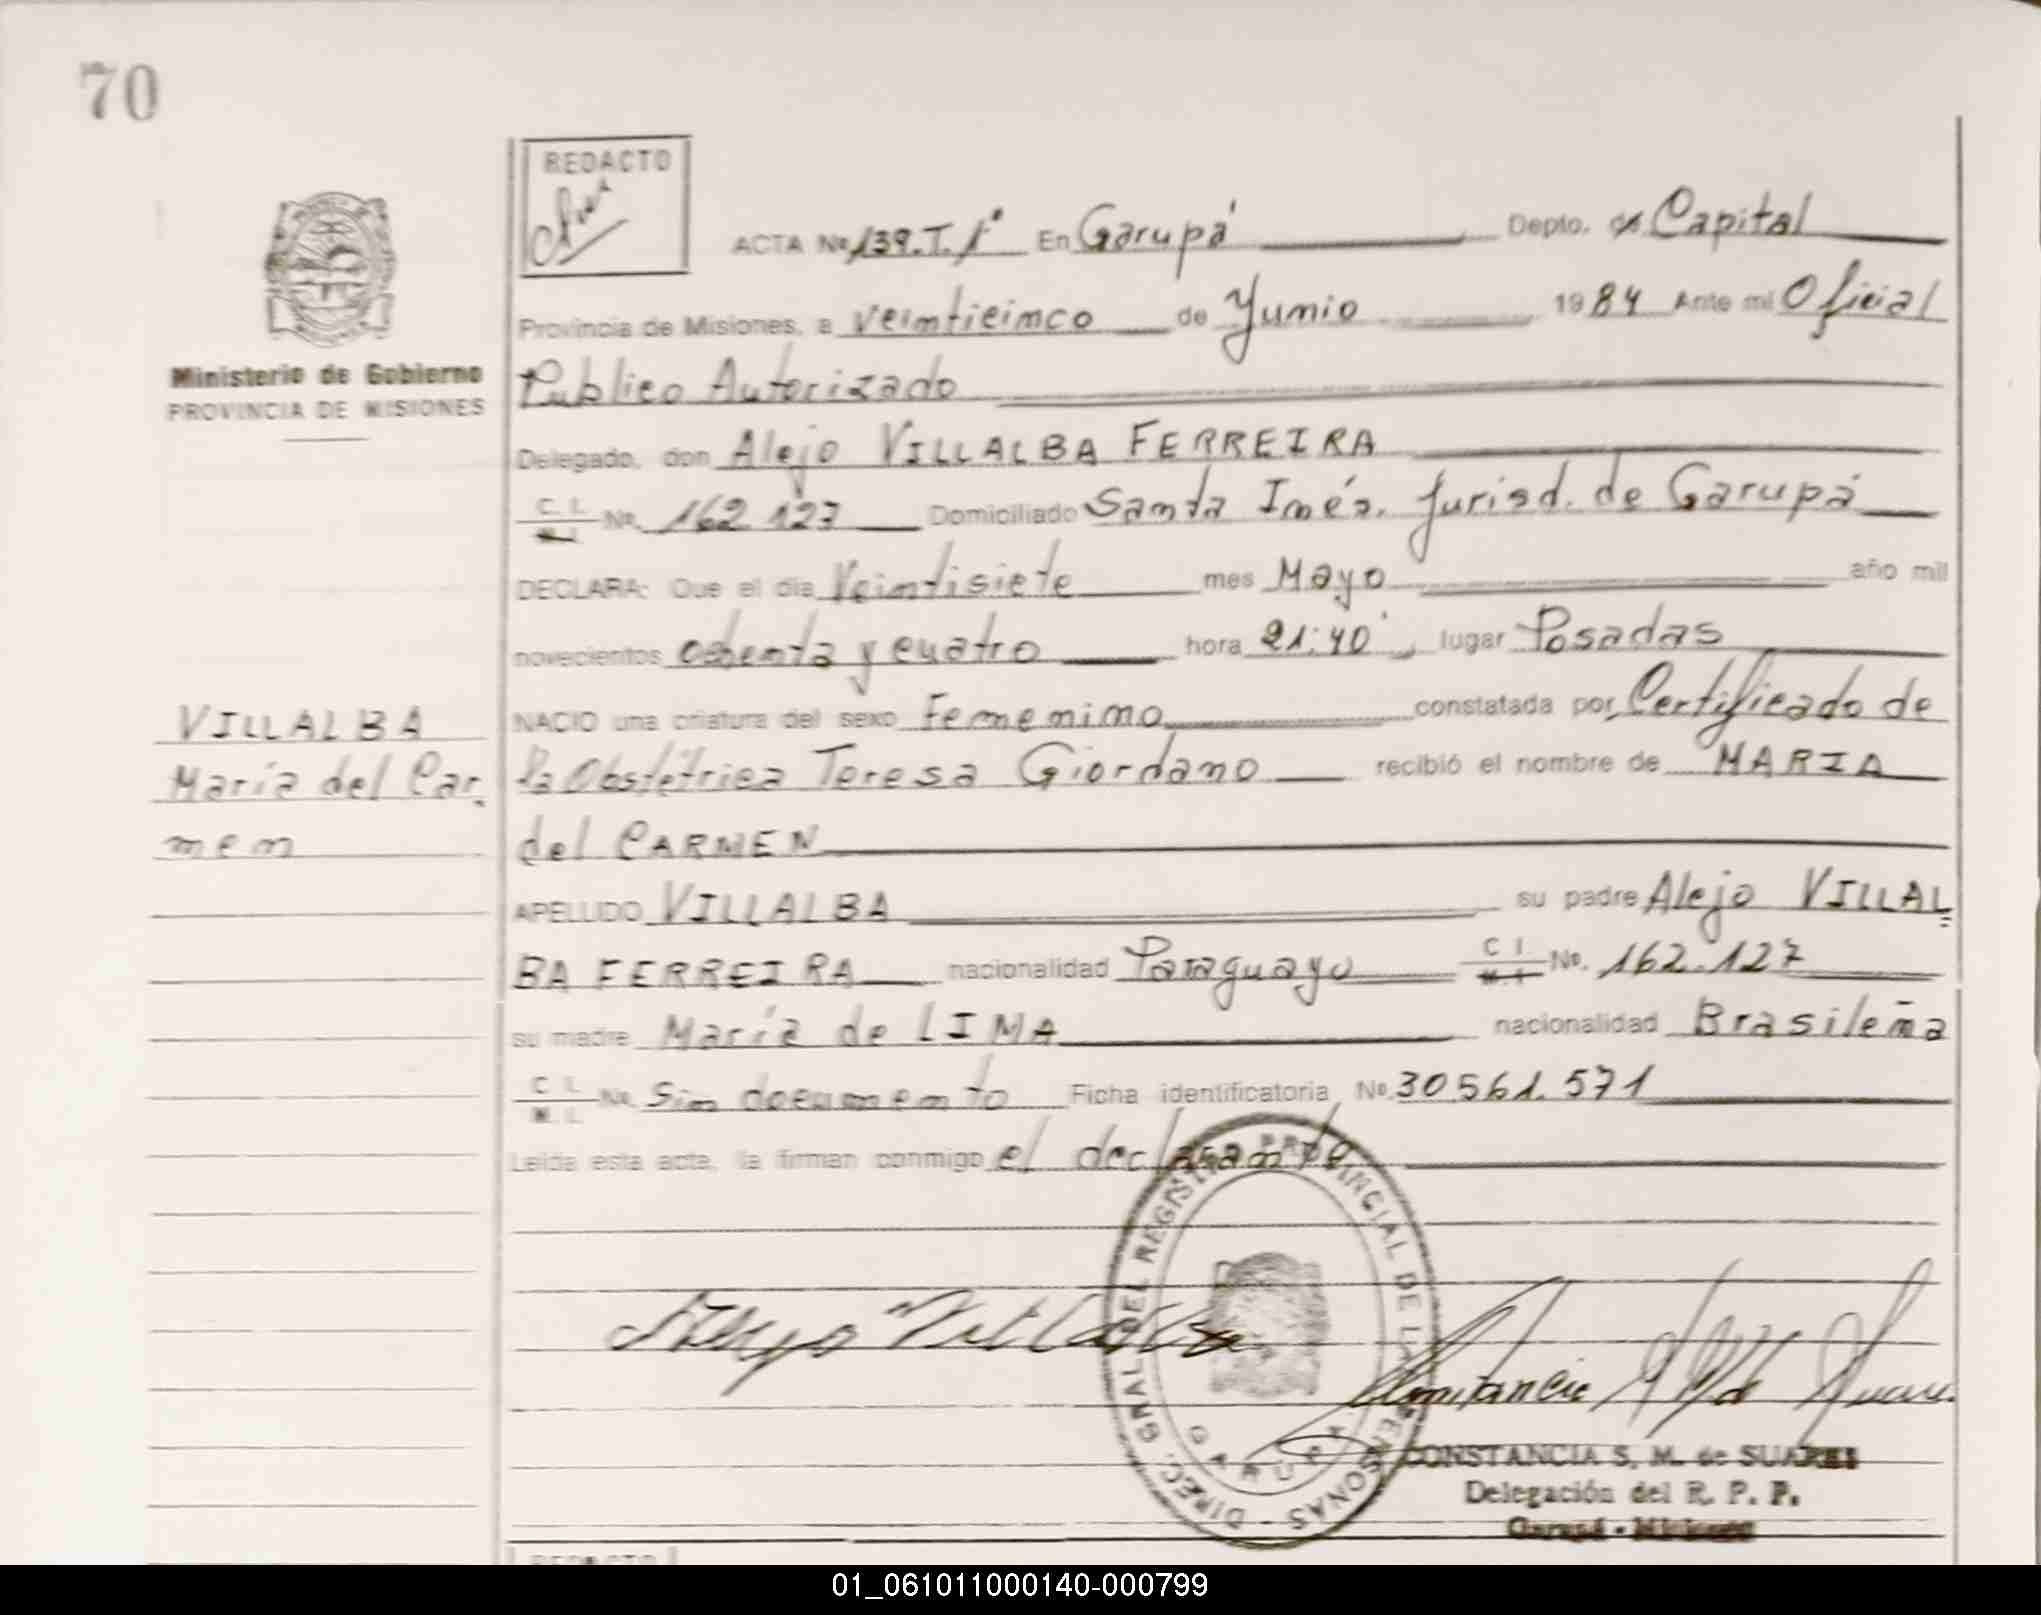 70
REDACTO
ACTA No 139.T.1° En Garupá Depto. de Capital
Provincia de Misiones, a veinticinco de Junio 1984 Ante mi Oficial
Ministerio de Gobierno
PROVINCIA DE MISIONES
Publico Autorizado
Delegado, don Alejo VILLALBA FERREIRA
C. I. No. 162.127 Domiciliado Santa Inés. Jurisd. de Garupá
DECLARA: Que el día Veintisiete mes Mayo año mil
novecientos ochenta y cuatro hora 21:40 lugar Posadas
NACIO una criatura del sexo Femenino constatada por Certificado de
VILLALBA
María del Car
men
la Obstétrica Teresa Giordano recibió el nombre de MARIA
del CARMEN
APELLIDO VILLALBA su padre Alejo VILLAL
BA FERREIRA nacionalidad Paraguayo C I No. 162.127
su madre María de LIMA nacionalidad Brasileña
C. I. M. I. No. Sin documento Ficha identificatoria No. 30561.571
Leída esta acta, la firman conmigo el declarante
DIREC. GRAL. DEL REGISTRO PROVINCIAL DE LAS PERSONAS
GARUPA
Alejo Villalba
Constancia de Suarez
CONSTANCIA S. M. de SUAREZ
Delegación del R. P. P.
Garupá - Misiones
REDACTO
01_061011000140-000799